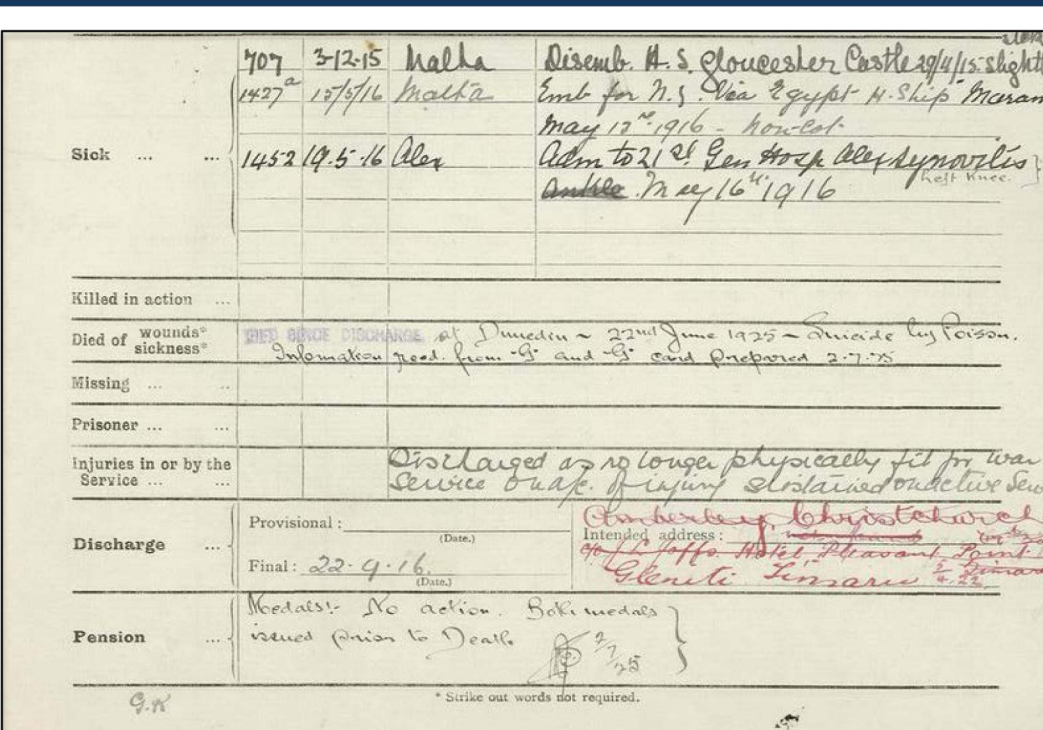 707 3-12-15 Malta Disemb. H.S. Gloucester Castle 29/4/15. slight
1427a 15/5/16 Malta Emb for N.Z. Via Egypt H. Ship Maram
May 12th 1916 - 
Sick ... ... 1452 19.5-16 Alex Adm to 21st Gen Hosp Alex Synovitis
Left Knee.
Ankle May 16th 1916
Killed in action ...
Died of wounds* sickness* DIED SINCE DISCHARGE at Dunedin - 22nd June 1925 - Suicide by Poison.
Information recd. from "G" and "G" card prepared 2-7-25
Missing ... ..
Prisoner ... ...
Injuries in or by the Service ... ... Discharged as no longer physically fit for war
service on a/c. of injury sustained on active Serv
Discharge ... Provisional :
(Date.)
Final : 22.9.16.
(Date.)
Amberley, Christchurch
Intended address :
c/o Joffs Hotel Pleasant Point
Gleniti Timaru
Pension ... Medals:- No action. Both medals
issued prior to Death
2/7/25
* Strike out words not required.
G.K